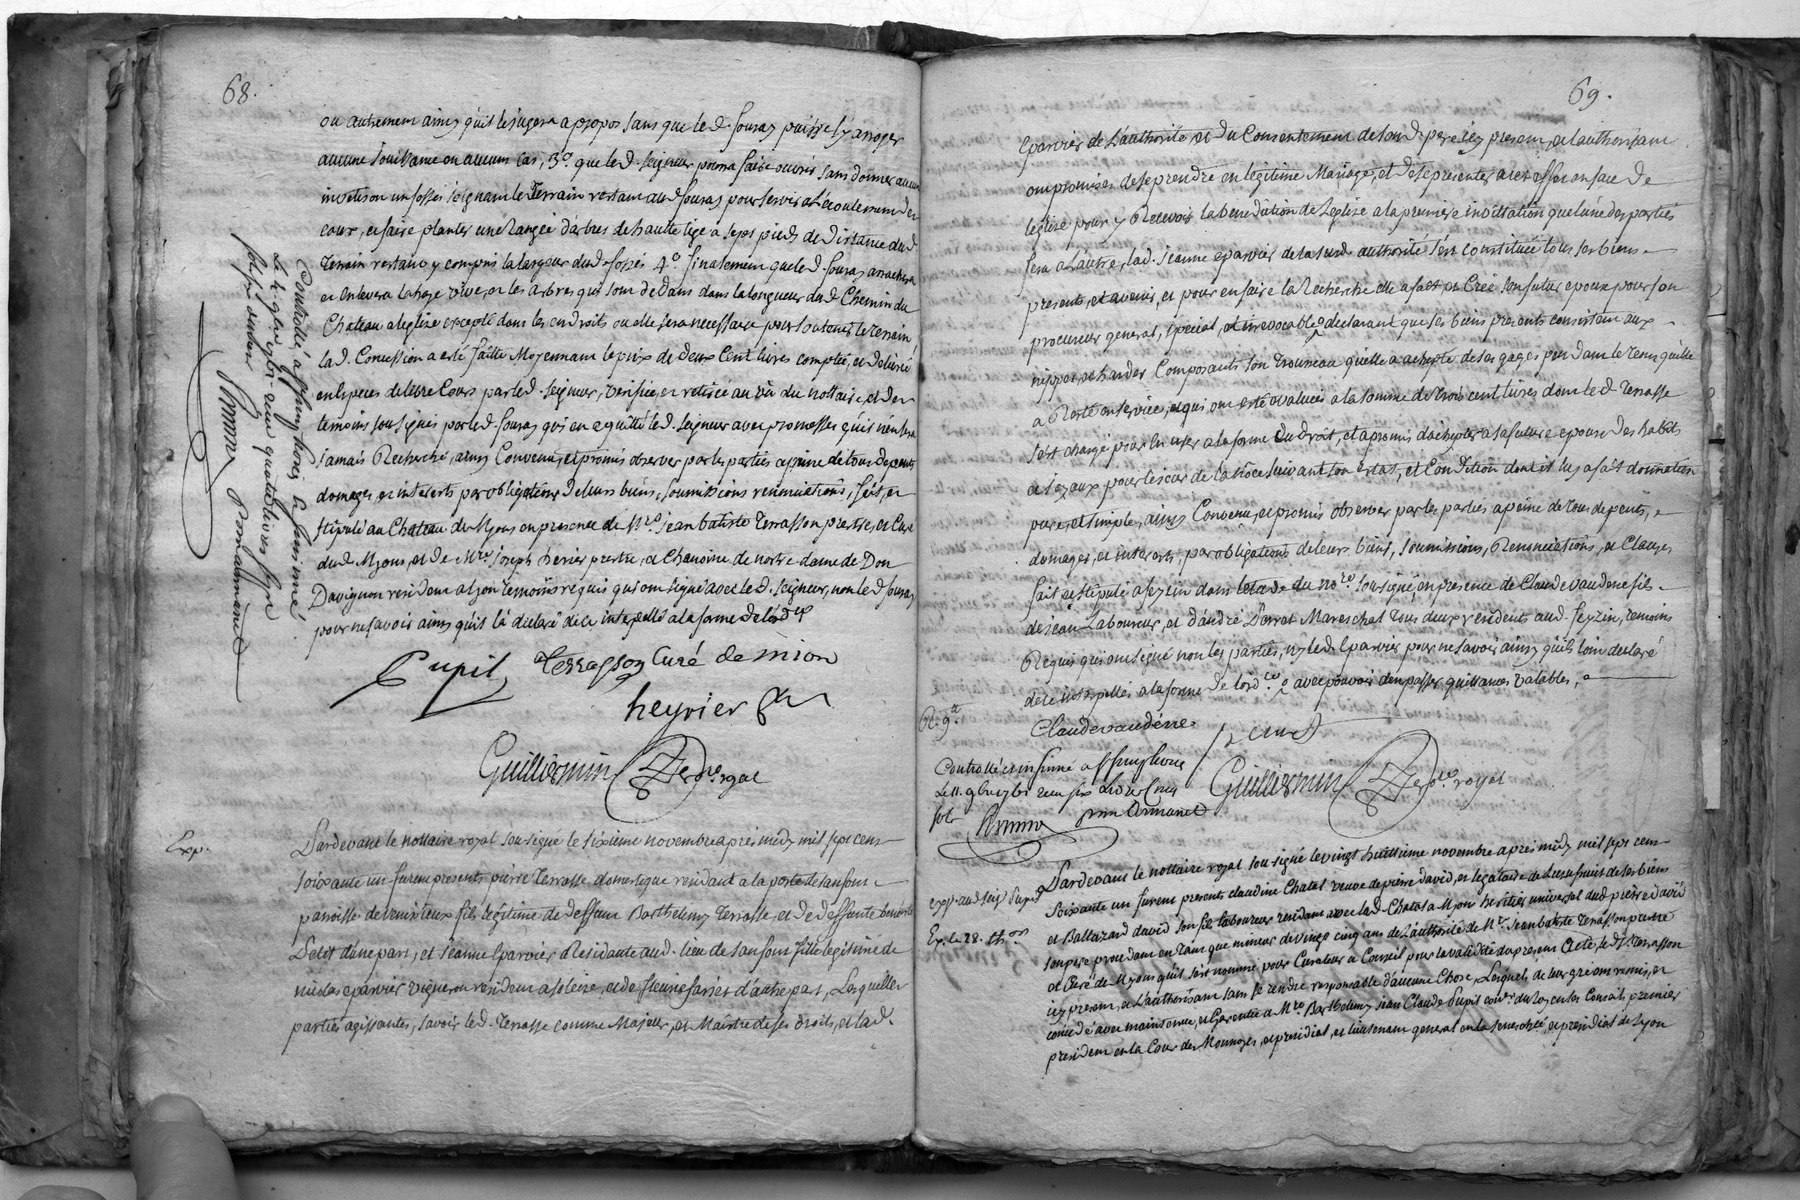 68.
ou autrement ainsy quil le jugera a propos sans que led. souzy puisse s'y arroger
aucune jouissance en aucun cas, 3o. que led. seigneur pourra faire ouvrir sans donner aucun
un fossé joignant le terrain restant aud. pour servir a l'écoulement des
eaux, et faire planter une rangée d'arbres de haulte tige a sept pieds de distance dud.
terrain restant y compris la largeur dud. fossés 4o. finalement que led. arrachera
et enlevera la haye vive, et les arbres qui sont dedans dans la longueur dud. Chemin du
Chateau a leglise excepté dans les endroits ou elle sera necessaire pour soutenir le terrain
lad. Concession a esté faitte Moyennant le prix de deux Cent livres comptée, et delivré
en especes de libre Cours par led. seigneur, verifiée et retirée au vû du nottaire, et des
temoins soussignés par led. qui en a quitté led. seigneur avec promesses qu'il n'en sera
jamais Recherché, ainsy Convenu, et promis observer par les parties a peine de tous depents
domages et interests par obligations de leurs biens, soumissions renonciations, fait, et
stipulé au Chateau de Myons en presence de Mre. jean batiste Terrasson prestre, et Curé
dud. Myons, et de Mre. joseph herier prestre, et Chanoine de nostre dame de Don
Davignon resident a lyon temoins requis qui ont signé avec led. seigneur, non led.
pour ne savoir ainsy qu'il l'a declaré de ce interpellé a la forme de l'ord.
Pupil Terrasson Curé de mion
heyrier
Guillermin no.re royal
Controllé a st simphorien
Le 4. 9bre 1761. reçu quatre livres
sols
Exp.
Pardevant le nottaire royal soussigné le sixieme novembre apres midy mil sept cens
soixante un furent presents pierre Terrasse domestique residant a la poste de sanfons
paroisse de venissieux fils legitime de deffunt Barthelemy Terrasse, et de deffunte
d'une part, et jeanne Eparvier Residante aud. lieu de sanfons fille legitime de
nicolas eparvier vigneron resident a soleize, et de d'autre part, Lesquelles
parties agissantes, savoir led. Terrasse comme Majeur, et Maitre de ses droits, et lad.
69.
Eparvier de L'authorité et du Consentement de sond. pere icy present, et l'authorisant
ont promis de se prendre en legitime Mariage, et de se presenter a cet effet en face de
leglise pour y Recevoir la benediction de leglise a la premiere invittation que l'une des parties
fera a l'autre, lad. jeanne eparvier de la susd. authorité s'est constituée tous ses biens
presents, et avenir, et pour en faire la Recherche elle a fait et Créé son futur epoux pour son
procureur general, special, et irrevocable declarant que ses biens presents consistent aux
nippes, et hardes Composants son trousseau quelle a achepté de ses gages pendant le tems quelle
a Resté en service, et qui ont esté evaluées a la somme de trois cent livres dont led. Terrasse
s'est chargé pour en user a la forme du droit, et a promis d'achepter a sa future epouse des habits
et joyaux pour le jour de la noce suivant son estat, et Condition dont il luy a fait donnation
pure, et simple, ainsy Convenu, et promis observer par les parties a peine de tous depents,
domages, et interets, par obligations de leurs biens, soumissions, Renonciations, et Clauzes
fait et stipulé a feyzin dans letude du nore. soussigné en presence de Claude vaudene fils
de jean Laboureur, et d'andré Perrat Mareschal tous deux residents aud. feyzin, temoins
Requis qui ont signé non les parties, ny led. Eparvier pour ne savoir ainsy quils l'ont declaré
de ce interpellés a la forme de l'ord.ce avec pouvoir d'en passer quittances valables,
Claude vaudenne
Guillermin no.re royal
Controllé et insinué a st simphorien
Le 11. 9bre 1761 reçu six livres cinq
sols
exp. aud. seigr. Pupil
Ex. le 28.
Pardevant le nottaire royal soussigné le vingt huittieme novembre apres midy mil sept cens
soixante un furent presents claudine Chatal veuve de pierre david, et legataire de l'usufruit de ses biens
et Baltazard david son fils laboureur residants avec lad. Chatal a Myons heritier universel dud. pierre david
son pere procedant en tant que mineur de vingt cinq ans de l'authorité de Mre. jean batiste Terrasson prestre
et Curé de Myons qu'il a nommé pour Curateur et Conseil pour la validité du present acte, led. Sr. Terrasson
icy present, et l'authorisant sans se rendre responsable d'aucune Chose, Lesquels de leur gré ont remis, et
concedé avec maintenue, et Garentie a Mre. Barthelemy jean Claude Pupil du roy en ses Conseils, premier
president en la Cour des Monnoyes, et presidial, et lieutenant general en la senechée et presidial de Lyon